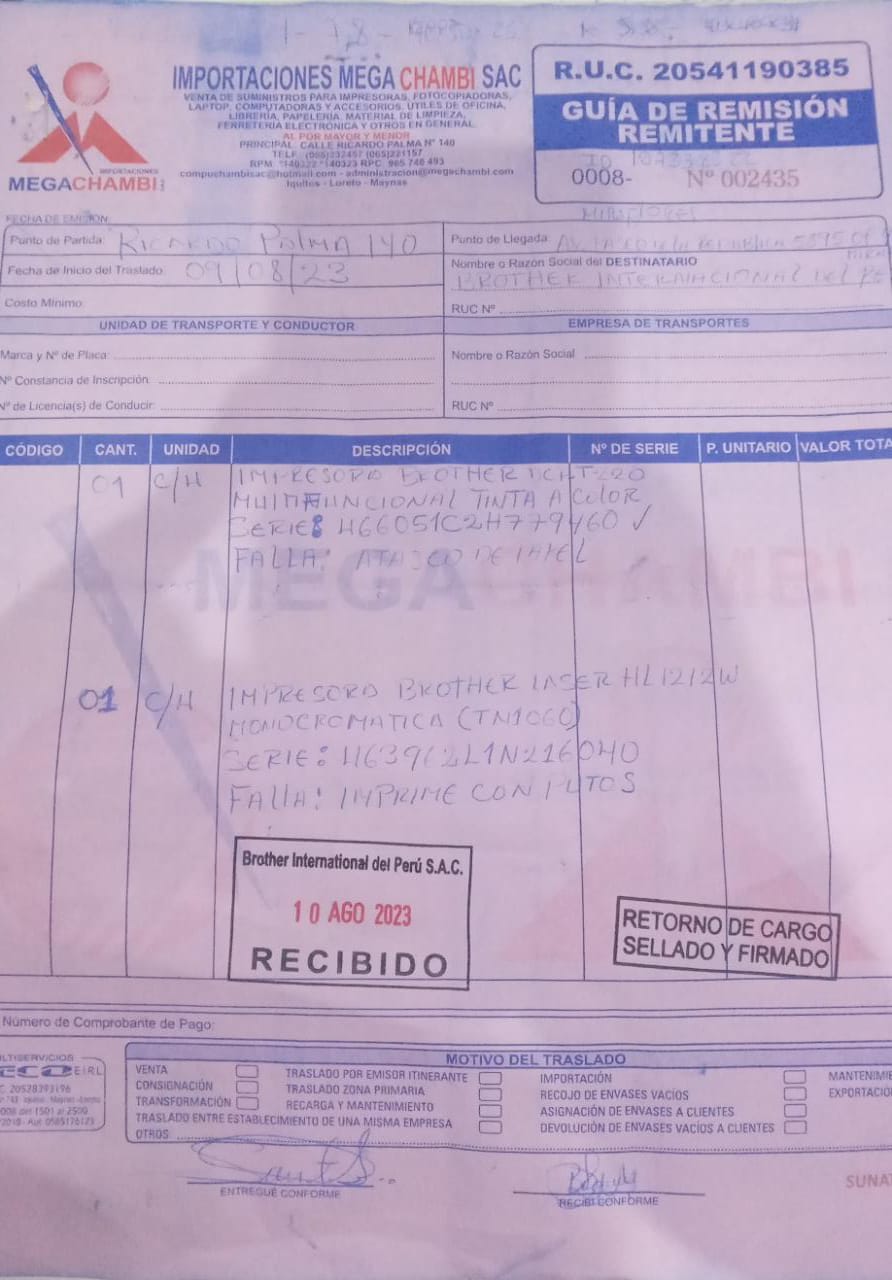 IMPORTACIONES MEGA CHAMBI SAC
VENTA DE SUMINISTROS PARA IMPRESORAS, FOTOCOPIADORAS,
LAPTOP, COMPUTADORAS Y ACCESORIOS, UTILES DE OFICINA,
LIBRERÍA, PAPELERÍA, MATERIAL DE LIMPIEZA,
FERRETERÍA ELECTRONICA Y OTROS EN GENERAL.
AL POR MAYOR Y MENOR
PRINCIPAL: CALLE RICARDO PALMA Nº 140
TELF. (065)232457 (065)221157
RPM *140322 *140323 RPC: 965 740 493
compuchambisac@hotmail.com - administracion@megachambi.com
Iquitos - Loreto - Maynas
IMPORTACIONES
MEGACHAMBI
R.U.C. 20541190385
GUÍA DE REMISIÓN
REMITENTE
0008- Nº 002435
FECHA DE EMISIÓN:
MIRAFLORES
Punto de Partida: RICARDO PALMA 140
Punto de Llegada:
Fecha de Inicio del Traslado: 09/08/23
Nombre o Razón Social del DESTINATARIO
BROTHER INTERNACIONAL DEL PE
Costo Mínimo:
RUC Nº
UNIDAD DE TRANSPORTE Y CONDUCTOR
EMPRESA DE TRANSPORTES
Marca y Nº de Placa:
Nombre o Razón Social
Nº Constancia de Inscripción:
Nº de Licencia(s) de Conducir:
RUC Nº
CÓDIGO CANT. UNIDAD DESCRIPCIÓN Nº DE SERIE P. UNITARIO VALOR TOTA
01 C/U IMPRESORA BROTHER
MULTIFUNCIONAL TINTA A COLOR
SERIE: U66051C2H779460 ✓
FALLA: ATASCO DE PAPEL
MEGACHAMBI
01 C/U IMPRESORA BROTHER LASER HL1212W
MONOCROMATICA (TN1060)
SERIE: U63962L1N216040
FALLA: IMPRIME CON PUTOS
Brother International del Perú S.A.C.
10 AGO 2023
RECIBIDO
RETORNO DE CARGO
SELLADO Y FIRMADO
Número de Comprobante de Pago:
LTISERVICIOS
E.I.R.L
C. 20528393196
MOTIVO DEL TRASLADO
VENTA
CONSIGNACIÓN
TRANSFORMACIÓN
TRASLADO ENTRE ESTABLECIMIENTO DE UNA MISMA EMPRESA
OTROS
TRASLADO POR EMISOR ITINERANTE
TRASLADO ZONA PRIMARIA
RECARGA Y MANTENIMIENTO
IMPORTACIÓN
RECOJO DE ENVASES VACÍOS
ASIGNACIÓN DE ENVASES A CLIENTES
DEVOLUCIÓN DE ENVASES VACÍOS A CLIENTES
MANTENIMIE
EXPORTACIÓ
ENTREGUÉ CONFORME
RECIBÍ CONFORME
SUNAT